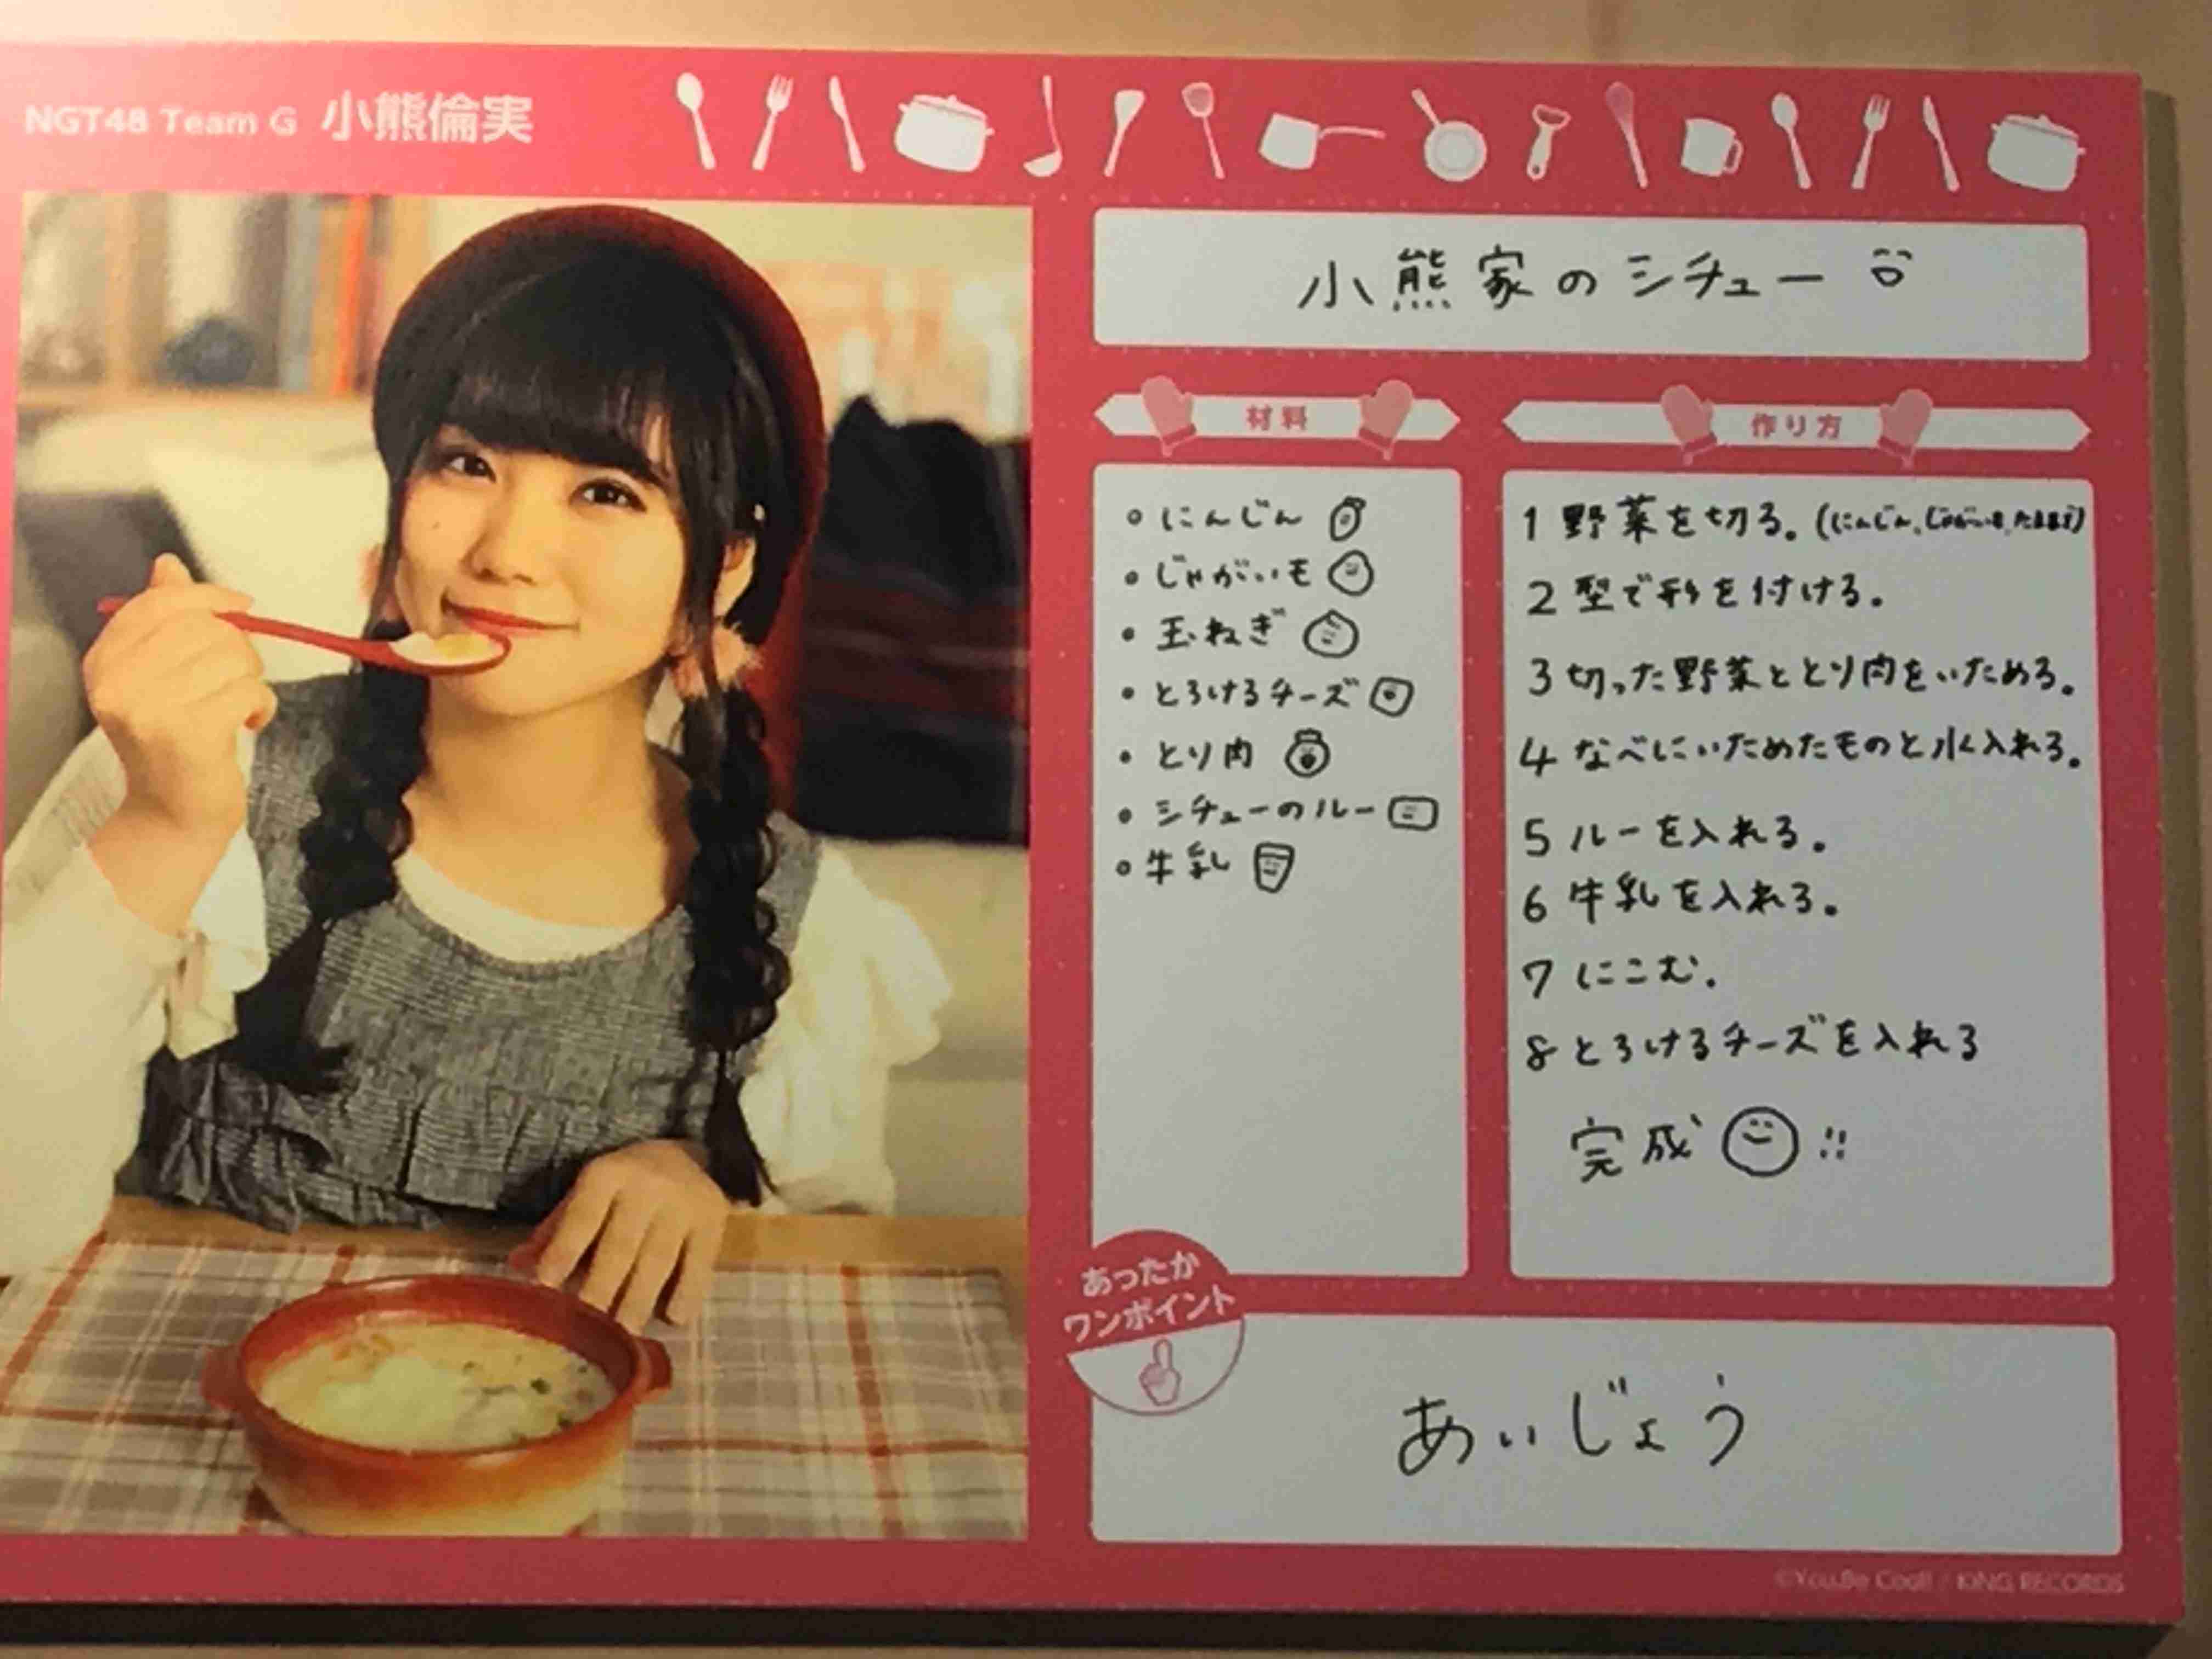 NGT48 Team G 小熊倫実
小熊家のシチュー
材料
にんじん
じゃがいも
玉ねぎ
とろけるチーズ
とり肉
シチューのルー
牛乳
作り方
1 野菜を切る。(にんじん、じゃがいも、たまねぎ)
2 型で形を付ける。
3 切った野菜ととり肉をいためる。
4 なべにいためたものと水入れる。
5 ルーを入れる。
6 牛乳を入れる。
7 にこむ。
8 とろけるチーズを入れる
完成 !!
あったか
ワンポイント
あいじょう
©You,Be Cool! / KING RECORDS